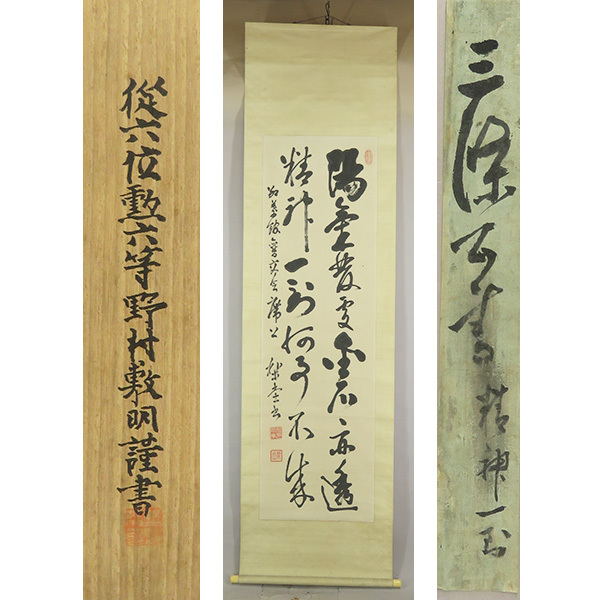 從六位勲六等野村敷明謹書
陽氣發處金石亦透
精神一到何事不成
三條公書精神一到